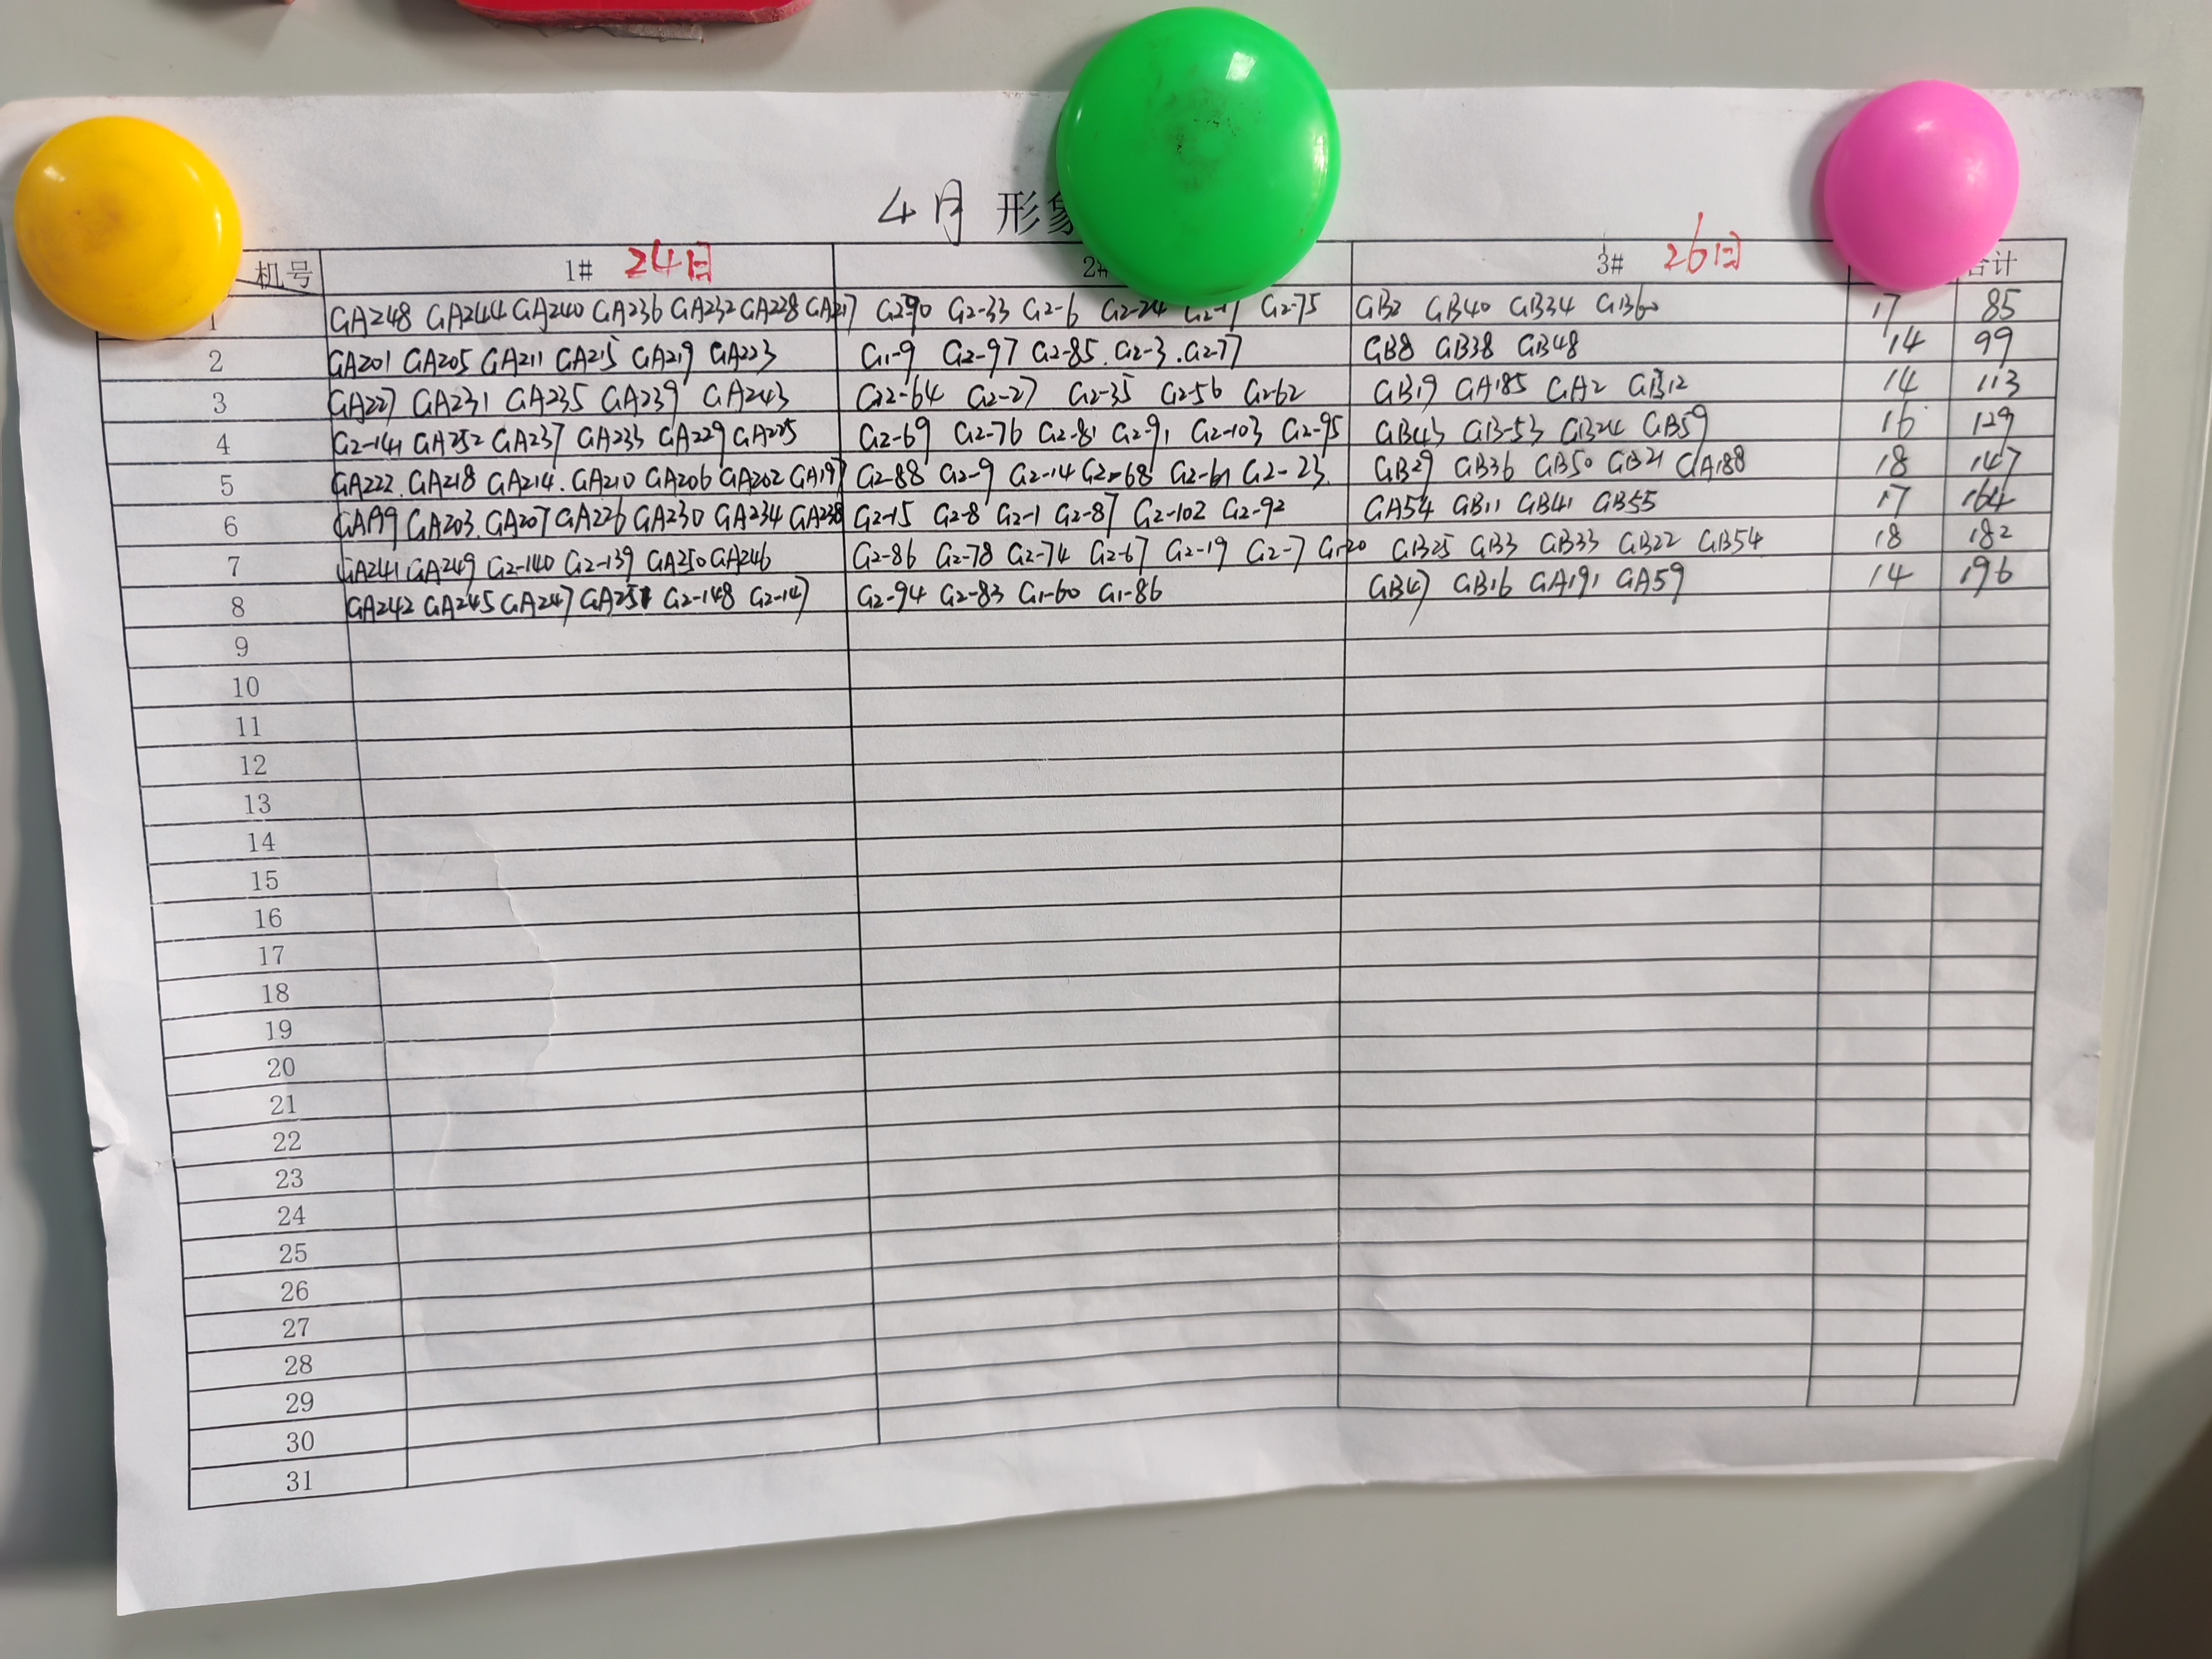 4月 形象
机号 1# 24日 2# 3# 26日 合计
1 GA248 GA244 GA240 GA236 GA232 GA228 GA217 G2-90 G2-33 G2-6 G2-24 G2-17 G2-75 GB2 GB40 GB34 GB60 17 85
2 GA201 GA205 GA211 GA215 GA219 GA223 G1-9 G2-97 G2-85. G2-3. G2-77 GB8 GB38 GB48 14 99
3 GA227 GA231 GA235 GA239 GA243 G2-64 G2-27 G2-35 G2-56 G2-62 GB19 GA185 GA2 GB12 14 113
4 G2-141 GA252 GA237 GA233 GA229 GA225 G2-69 G2-76 G2-81 G2-91 G2-103 G2-95 GB43 GB-53 GB24 GB59 16 129
5 GA222. GA218 GA214. GA210 GA206 GA202 GA197 G2-88 G2-9 G2-14 G2-68 G2-61 G2-23. GB29 GB36 GB50 GB21 GA188 18 147
6 GA199 GA203. GA207 GA226 GA230 GA234 GA238 G2-15 G2-8 G2-1 G2-87 G2-102 G2-92 GA54 GB11 GB41 GB55 17 164
7 GA241 GA249 G2-140 G2-139 GA250 GA246 G2-86 G2-78 G2-74 G2-67 G2-19 G2-7 G1-20 GB25 GB3 GB33 GB22 GB54 18 182
8 GA242 GA245 GA247 GA251 G2-148 G2-147 G2-94 G2-83 G1-60 G1-86 GB47 GB16 GA191 GA59 14 196
9
10
11
12
13
14
15
16
17
18
19
20
21
22
23
24
25
26
27
28
29
30
31